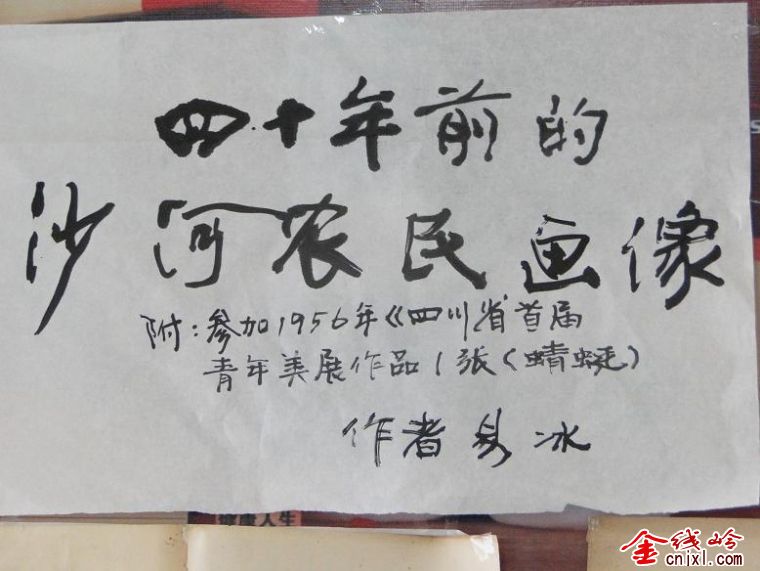 四十年前的
沙河农民画像
附:参加1956年《四川省首届
青年美展作品1张(蜻蜓)
作者易冰
健康人生
金线岭
cnjxl.com